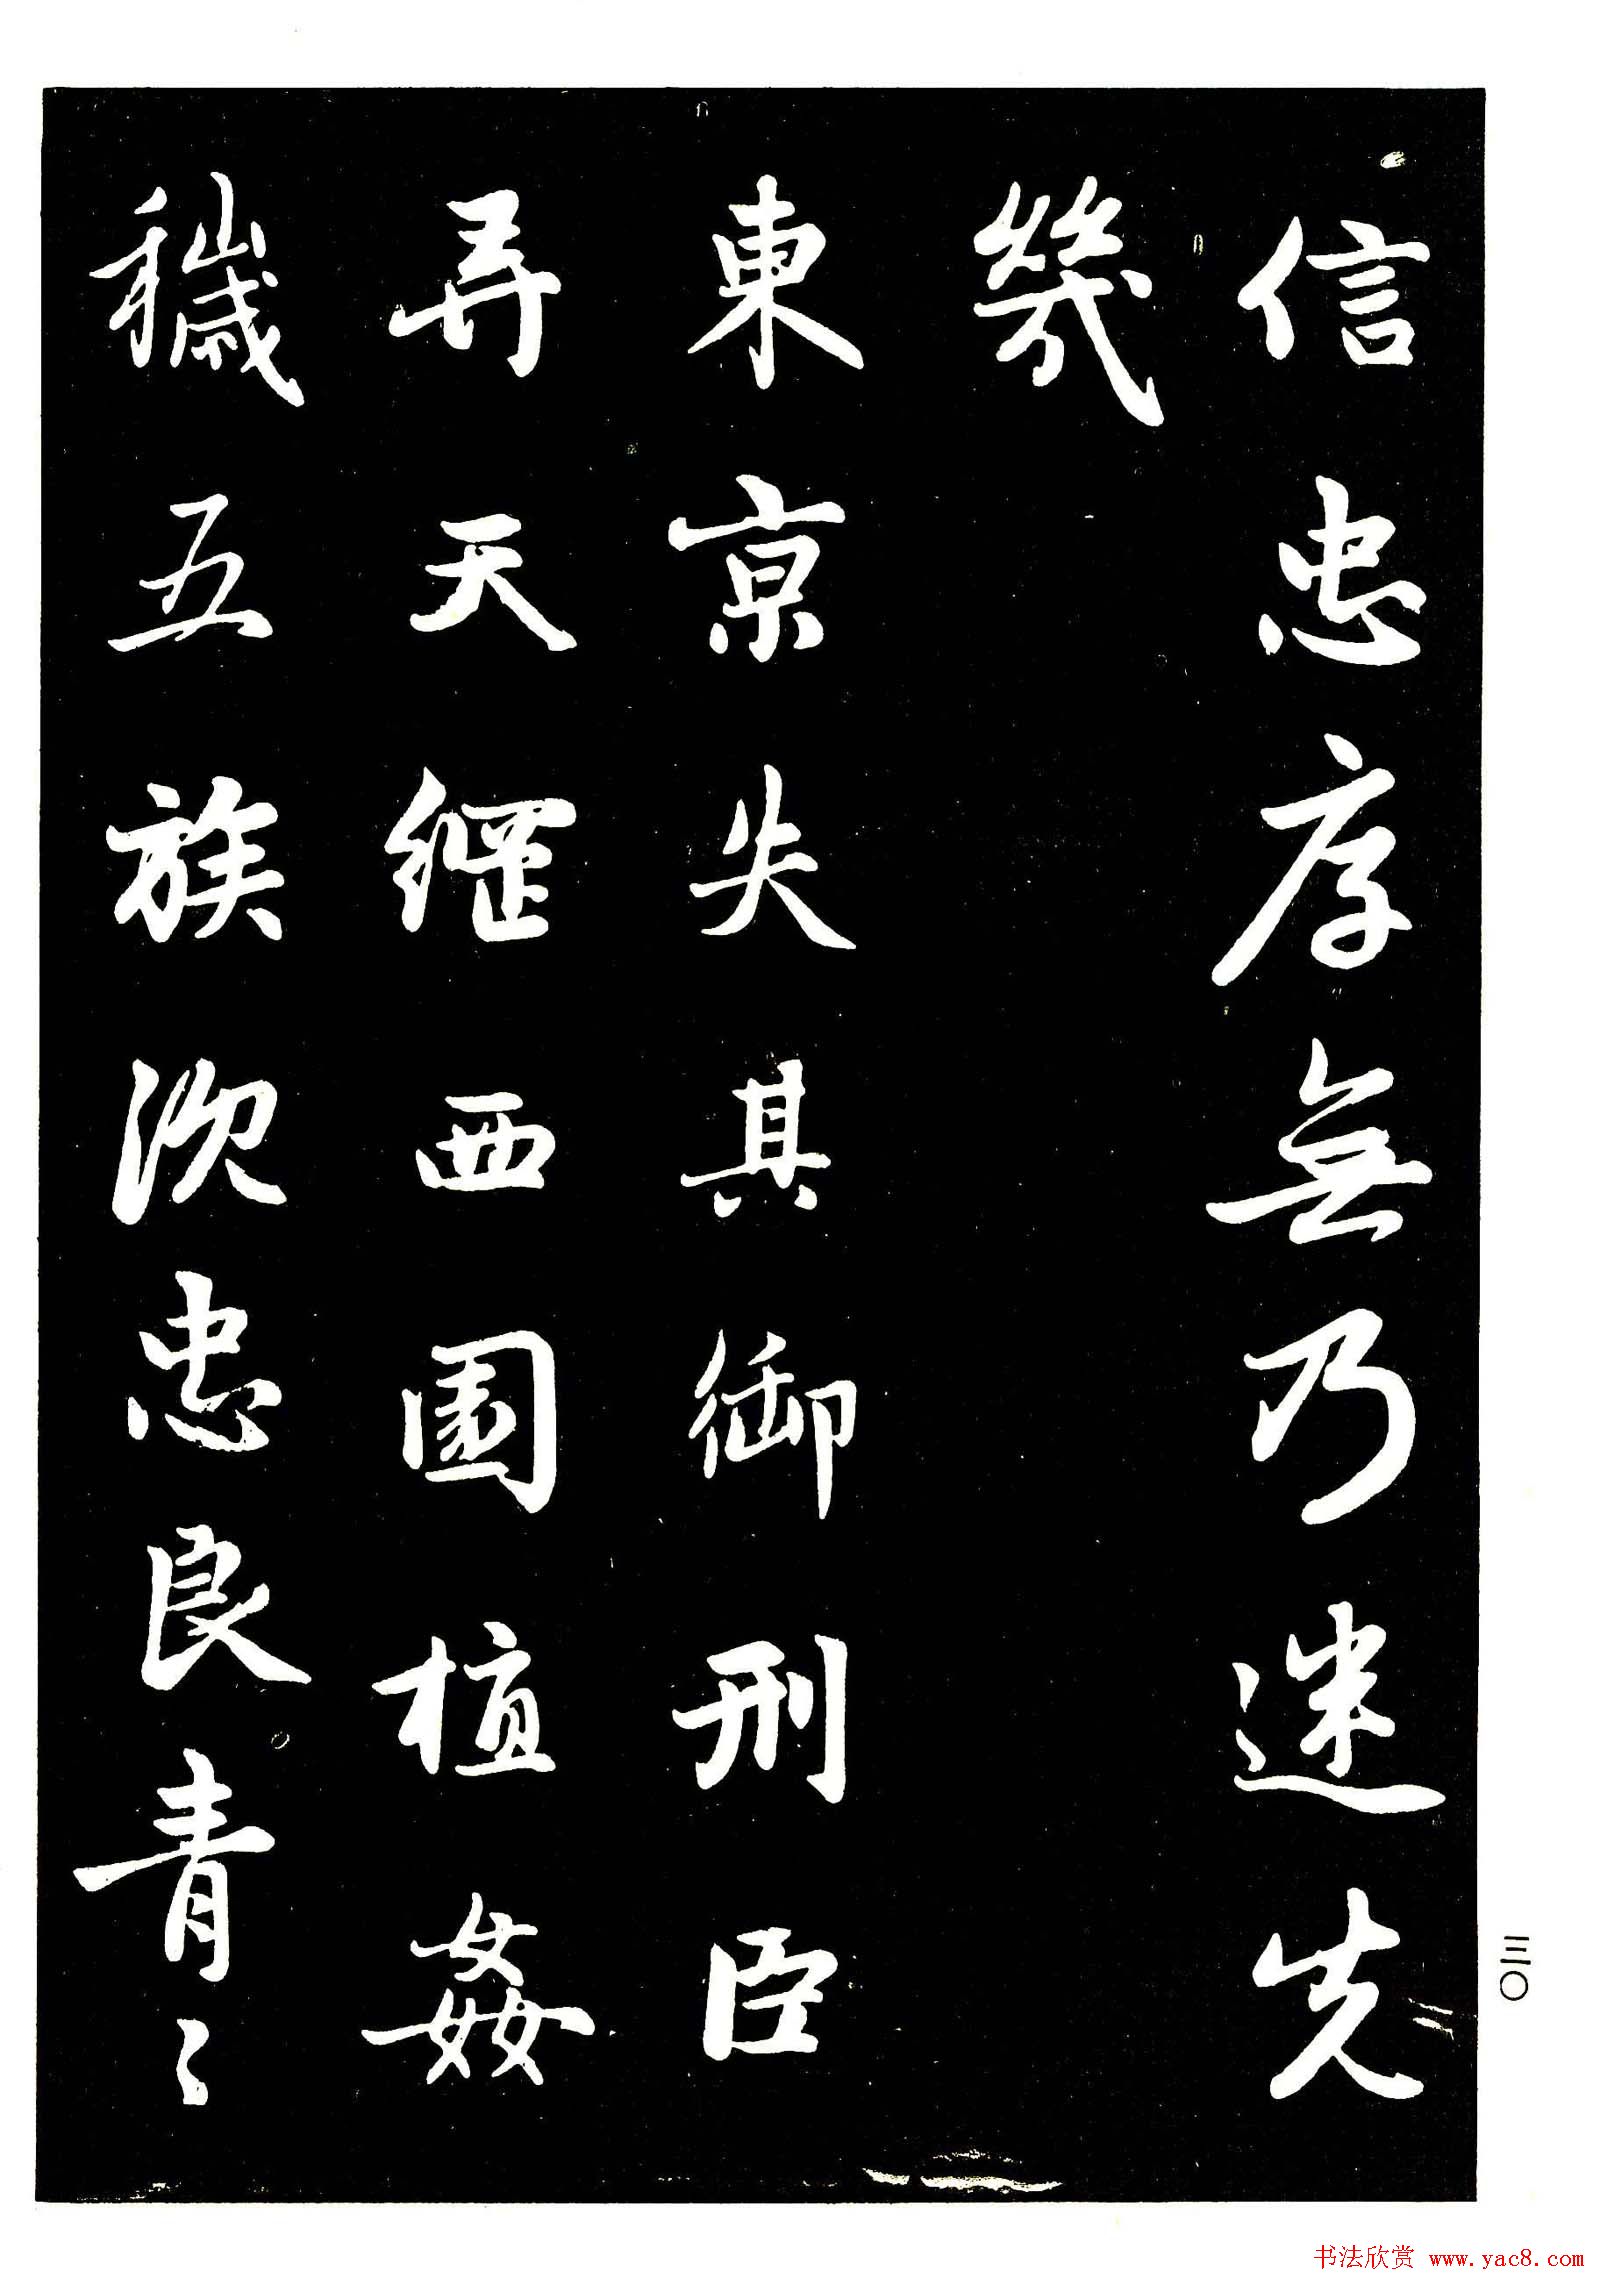 信忠厚無乃迷先
幾
東京失其御刑臣
弄天綱西園植姦
穢五族沈忠良青〻
三〇
书法欣赏 www.yac8.com